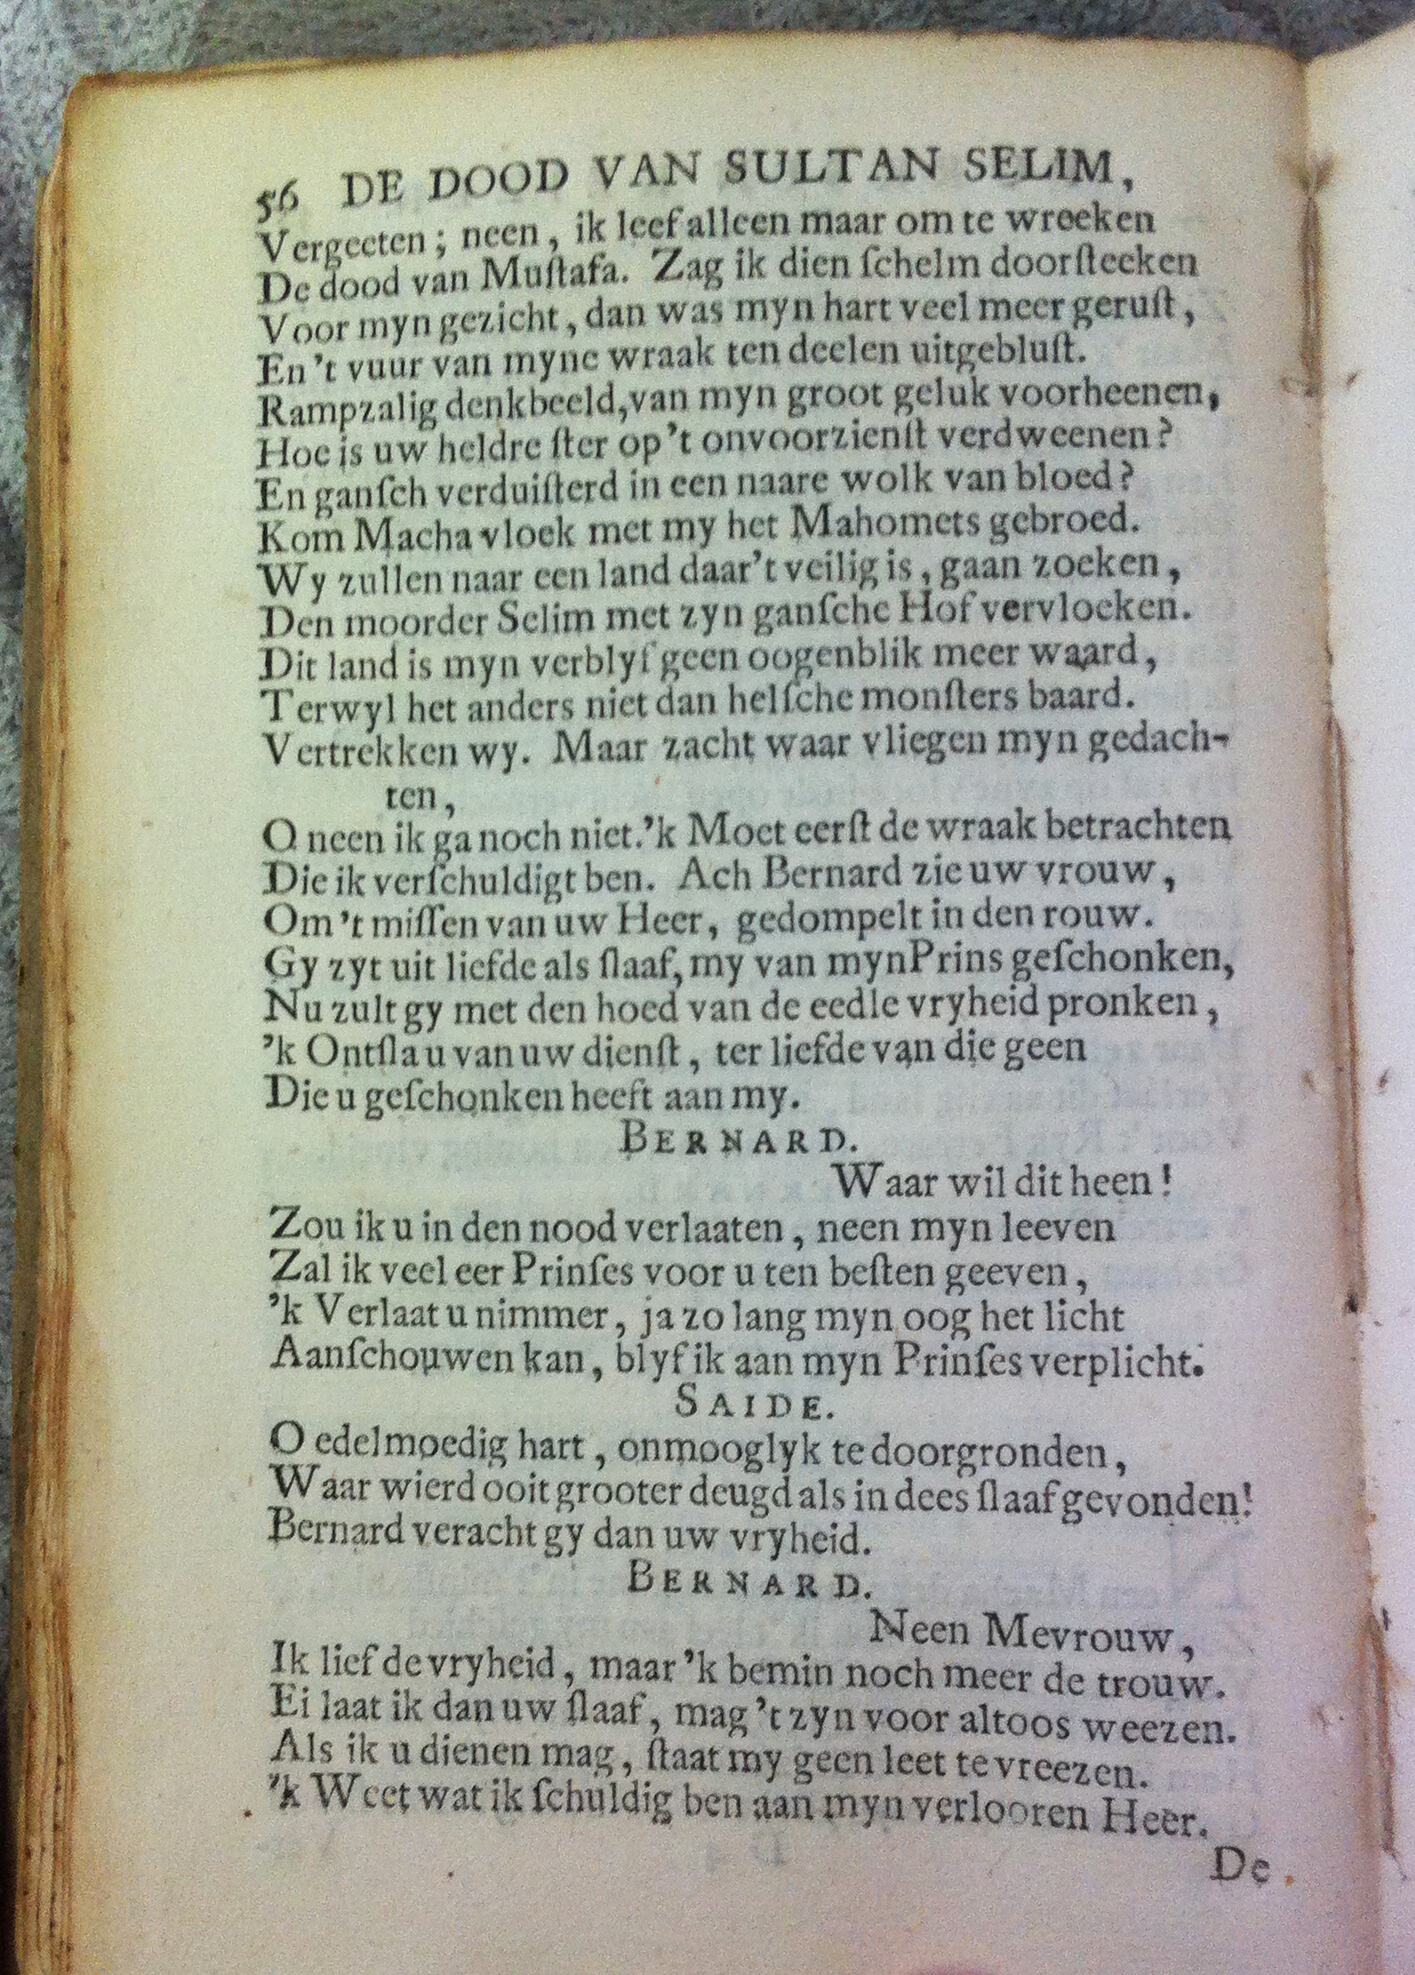 56 DE DOOD VAN SULTAN SELIM,
Vergeeten; neen, ik leef alleen maar om te wreeken
De dood van Muſtafa. Zag ik dien ſchelm doorſteeken
Voor myn gezicht, dan was myn hart veel meer geruſt,
En 't vuur van myne wraak ten deelen uitgebluſt.
Rampzalig denkbeeld, van myn groot geluk voorheenen,
Hoe is uw heldre ſter op 't onvoorzienſt verdweenen?
En ganſch verduiſterd in een naare wolk van bloed?
Kom Macha vloek met my het Mahomets gebroed.
Wy zullen naar een land daar 't veilig is, gaan zoeken,
Den moorder Selim met zyn ganſche Hof vervloeken.
Dit land is myn verblyf geen oogenblik meer waard,
Terwyl het anders niet dan helſche monſters baard.
Vertrekken wy. Maar zacht waar vliegen myn gedach-
ten,
O neen ik ga noch niet. 'k Moet eerſt de wraak betrachten
Die ik verſchuldigt ben. Ach Bernard zie uw vrouw,
Om 't miſſen van uw Heer, gedompelt in den rouw.
Gy zyt uit liefde als ſlaaf, my van myn Prins geſchonken,
Nu zult gy met den hoed van de eedle vryheid pronken,
'k Ontſla u van uw dienſt, ter liefde van die geen
Die u geſchonken heeft aan my.
BERNARD.
Waar wil dit heen!
Zou ik u in den nood verlaaten, neen myn leeven
Zal ik veel eer Prinſes voor u ten beſten geeven,
'k Verlaat u nimmer, ja zo lang myn oog het licht
Aanſchouwen kan, blyf ik aan myn Prinſes verplicht.
SAIDE.
O edelmoedig hart, onmooglyk te doorgronden,
Waar wierd ooit grooter deugd als in dees ſlaaf gevonden!
Bernard veracht gy dan uw vryheid.
BERNARD.
Neen Mevrouw,
Ik lief de vryheid, maar 'k bemin noch meer de trouw.
Ei laat ik dan uw ſlaaf, mag 't zyn voor altoos weezen.
Als ik u dienen mag, ſtaat my geen leet te vreezen.
'k Weet wat ik ſchuldig ben aan myn verlooren Heer.
De